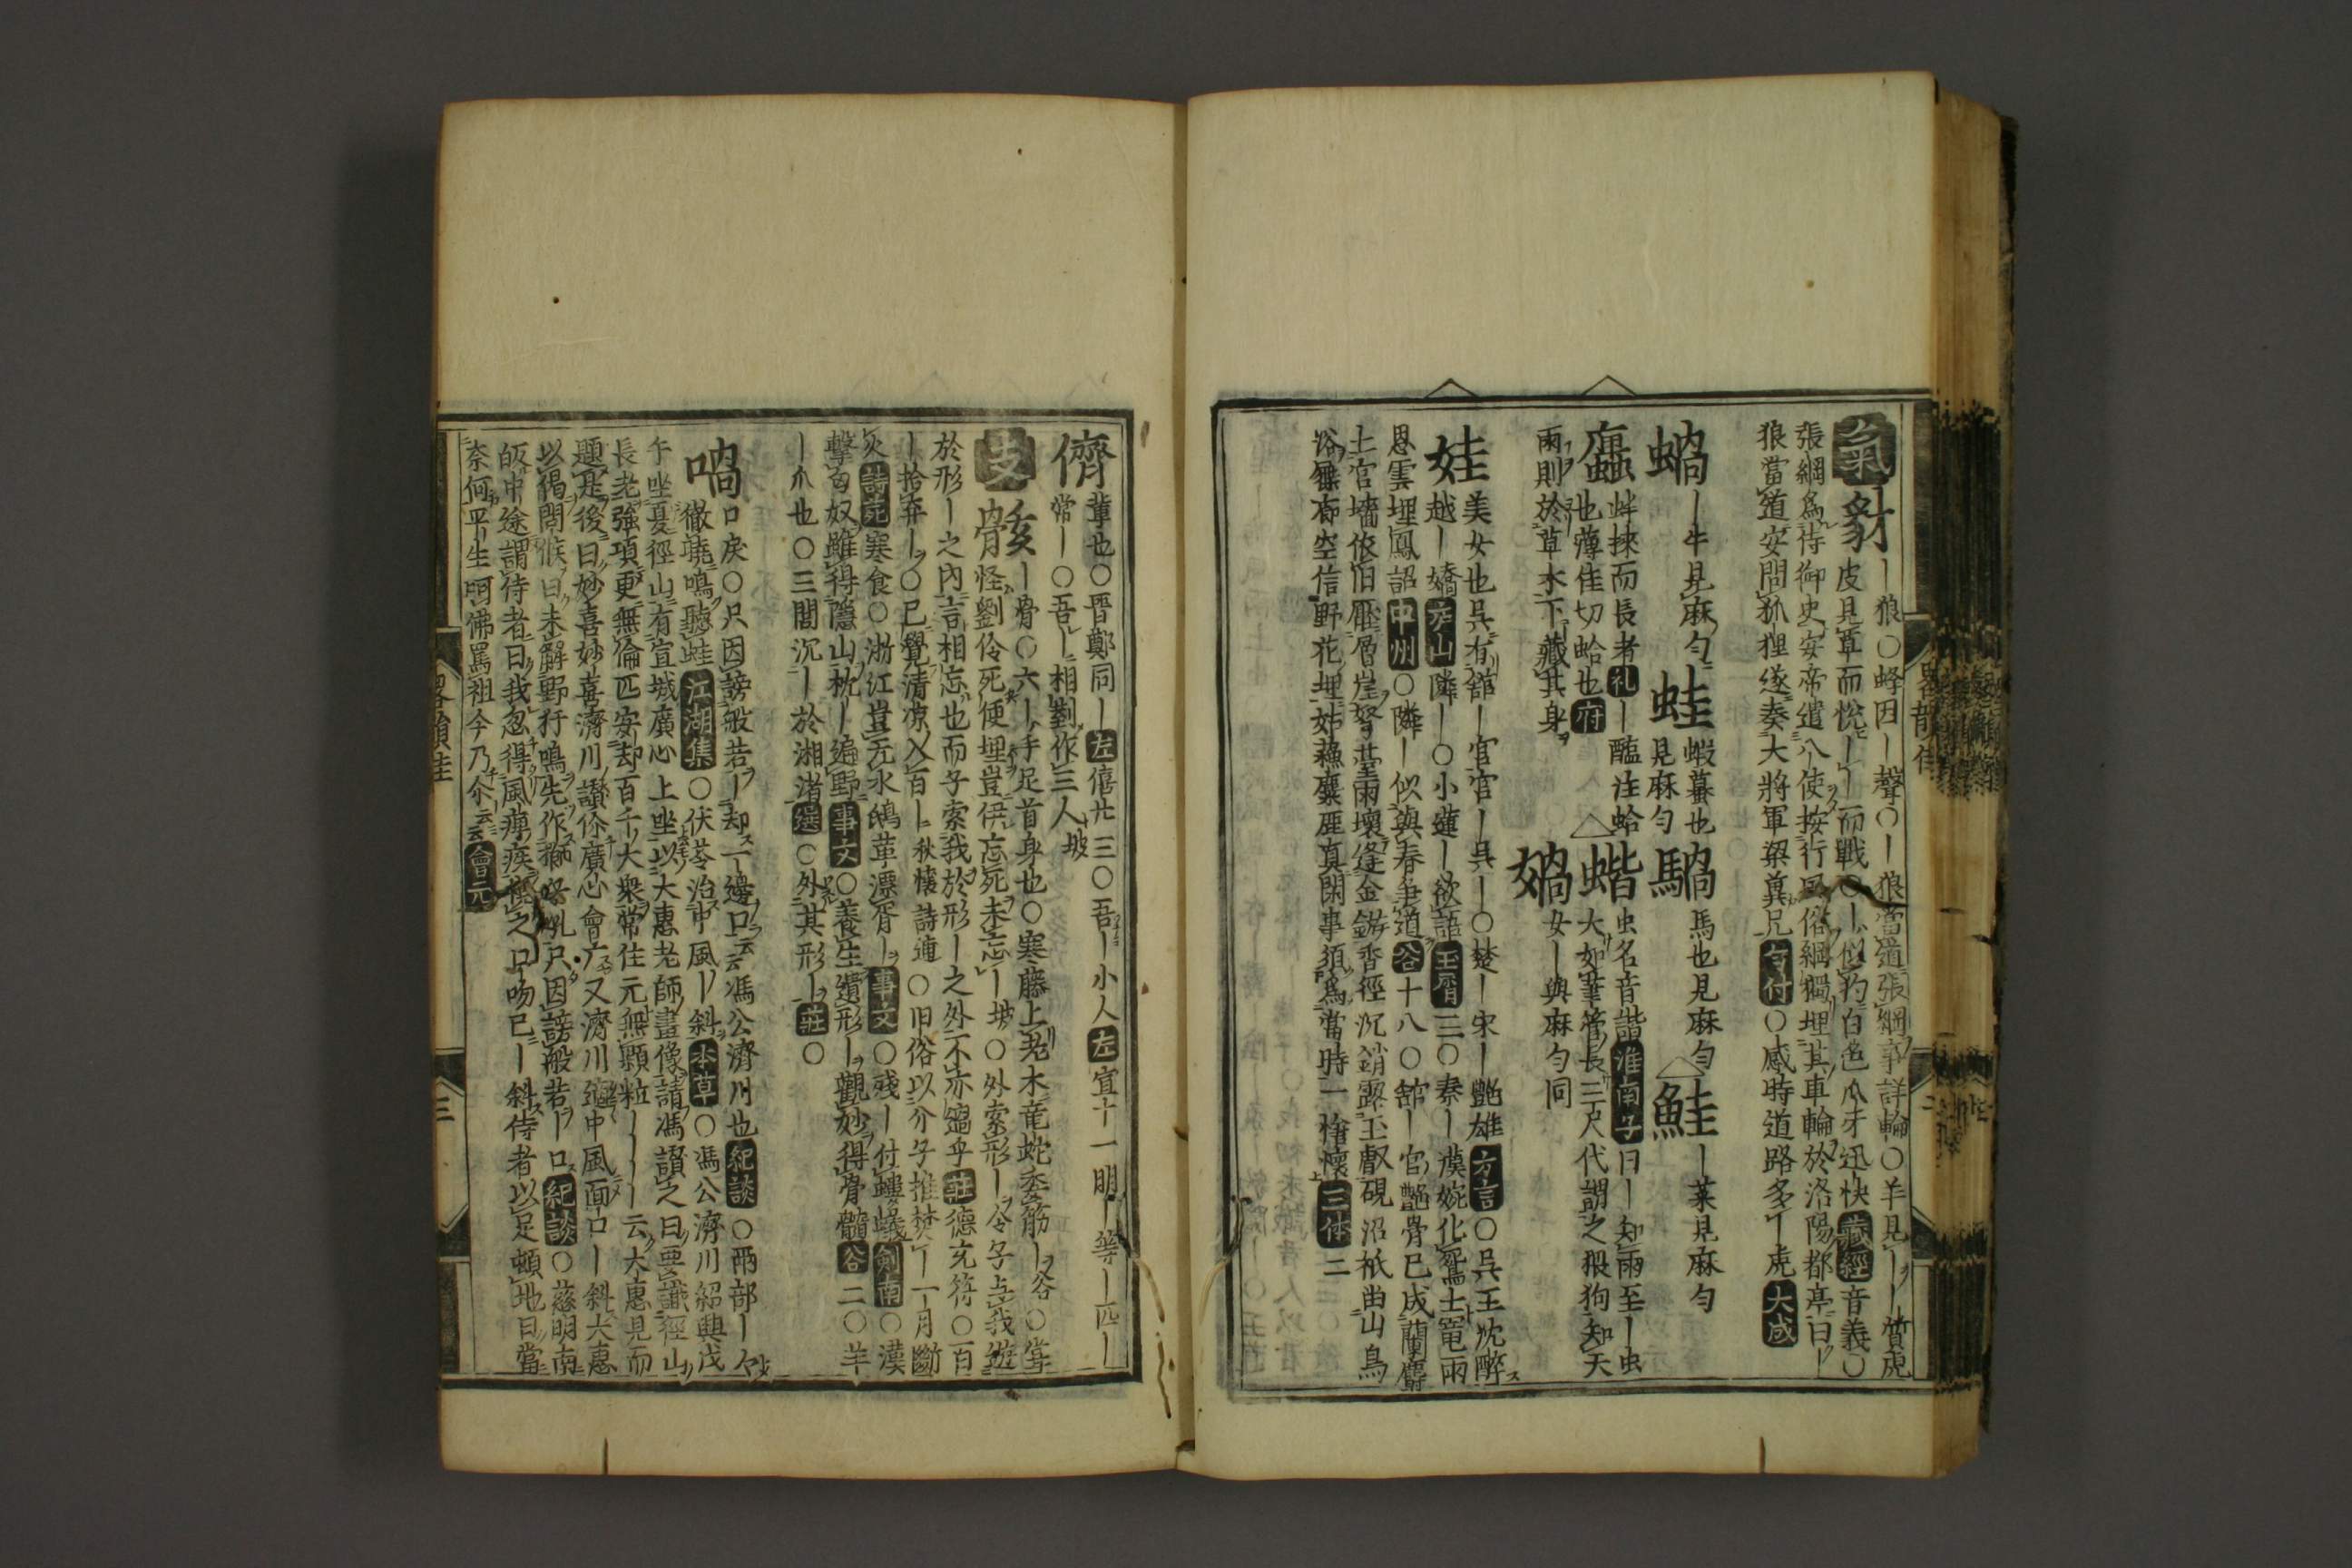 氣
豺
｜狼〇蜂目｜聲〇｜狼當道張綱事詳輪〇羊見｜｜質虎
皮見草而悅｜｜而戰〇｜似狗白色爪牙迅快藏經音義〇
張綱為待御史安帝遣八使按行風俗綱獨埋其車輪於洛陽都亭曰｜
狼當道安問狐狸遂奏大將軍梁冀兄〇感時道路多｜虎大成
蝸
｜牛見麻勻
蛙
蝦蟇也見麻勻
騧
馬也見麻勻
鮭
｜菜見麻勻
蠯
蚌狹而長者礼｜醢注蛤也薄佳切蛤也府
蝔
虫名音諧淮南子曰｜知雨至｜虫
大如筆管長三尺代謂之猥狗知天
雨則於草木下藏其身
媧
女｜與麻勻同
娃
美女也吳有舘｜宮宮｜吳｜〇楚｜宋｜艷雄方言〇吳王沈醉
越｜嬌庐山隣｜〇小蓮｜欲語玉屑三〇秦｜漢婉化鴛土竃雨
恩雲埋鳳詔中州〇隣｜似與春爭道谷十八〇舘｜宮艷骨已成蘭麝
土宮墻依旧壓層崖弩臺雨壞逢金鏃香徑沉銷露玉釵硯沼祇由山鳥
浴屧廊空信野花埋姑蘇麋鹿真閑事須為當時一愴懷三体二
儕
輩也〇晉鄭同｜左僖廿三〇吾｜小人左宣十一明｜等｜匹｜
常｜〇吾｜相對作三人坡
骸
｜骨〇六｜手足首身也〇寒藤上老木竜蛇委筋｜谷〇堂
骨怪劉伶死便埋豈伊忘死未忘｜坡〇外索形｜令子与我遊
於形｜之內言相忘也而子索我於形｜之外不亦過乎莊德充符〇百
｜拾弃｜〇已覺清凉入百｜秋懷詩適〇旧俗以介子推焚｜一月斷
火詩苑寒食〇浙江豈无水鴟革漂胥｜事文〇殘｜付螻蟻劍南〇漢
擊匈奴雖得隱山枕｜遍野事文〇養生遺形｜觀妙得骨髓谷二〇羊
｜爪也〇三閭沉｜於湘渚選〇外其形｜莊〇
喎
口戾〇只因謗般若｜却一邊口云云馮公濟川也紀談〇兩部｜々
徹曉鳴聽蛙江湖集〇伏苓治中風｜斜本草〇馮公濟川紹興戊
午坐夏徑山有宣城廣心上坐以大惠老師畫像請馮讃之曰要識徑山
長老強項更無倫匹安却百千大衆常住元無顆粒｜｜｜云大惠見而
題是後曰妙喜妙喜濟川讃你廣心會广又濟川適中風面口｜斜大惠
以偈問候曰未解野行鳴先作獅子吼只因謗般若｜口紀談〇慈明南
皈中途謂侍者曰我忽得風痺疾視之口吻已｜斜侍者以足頓地曰當
奈何平生呵佛罵祖今乃尒云云會元
畧韻佳
三